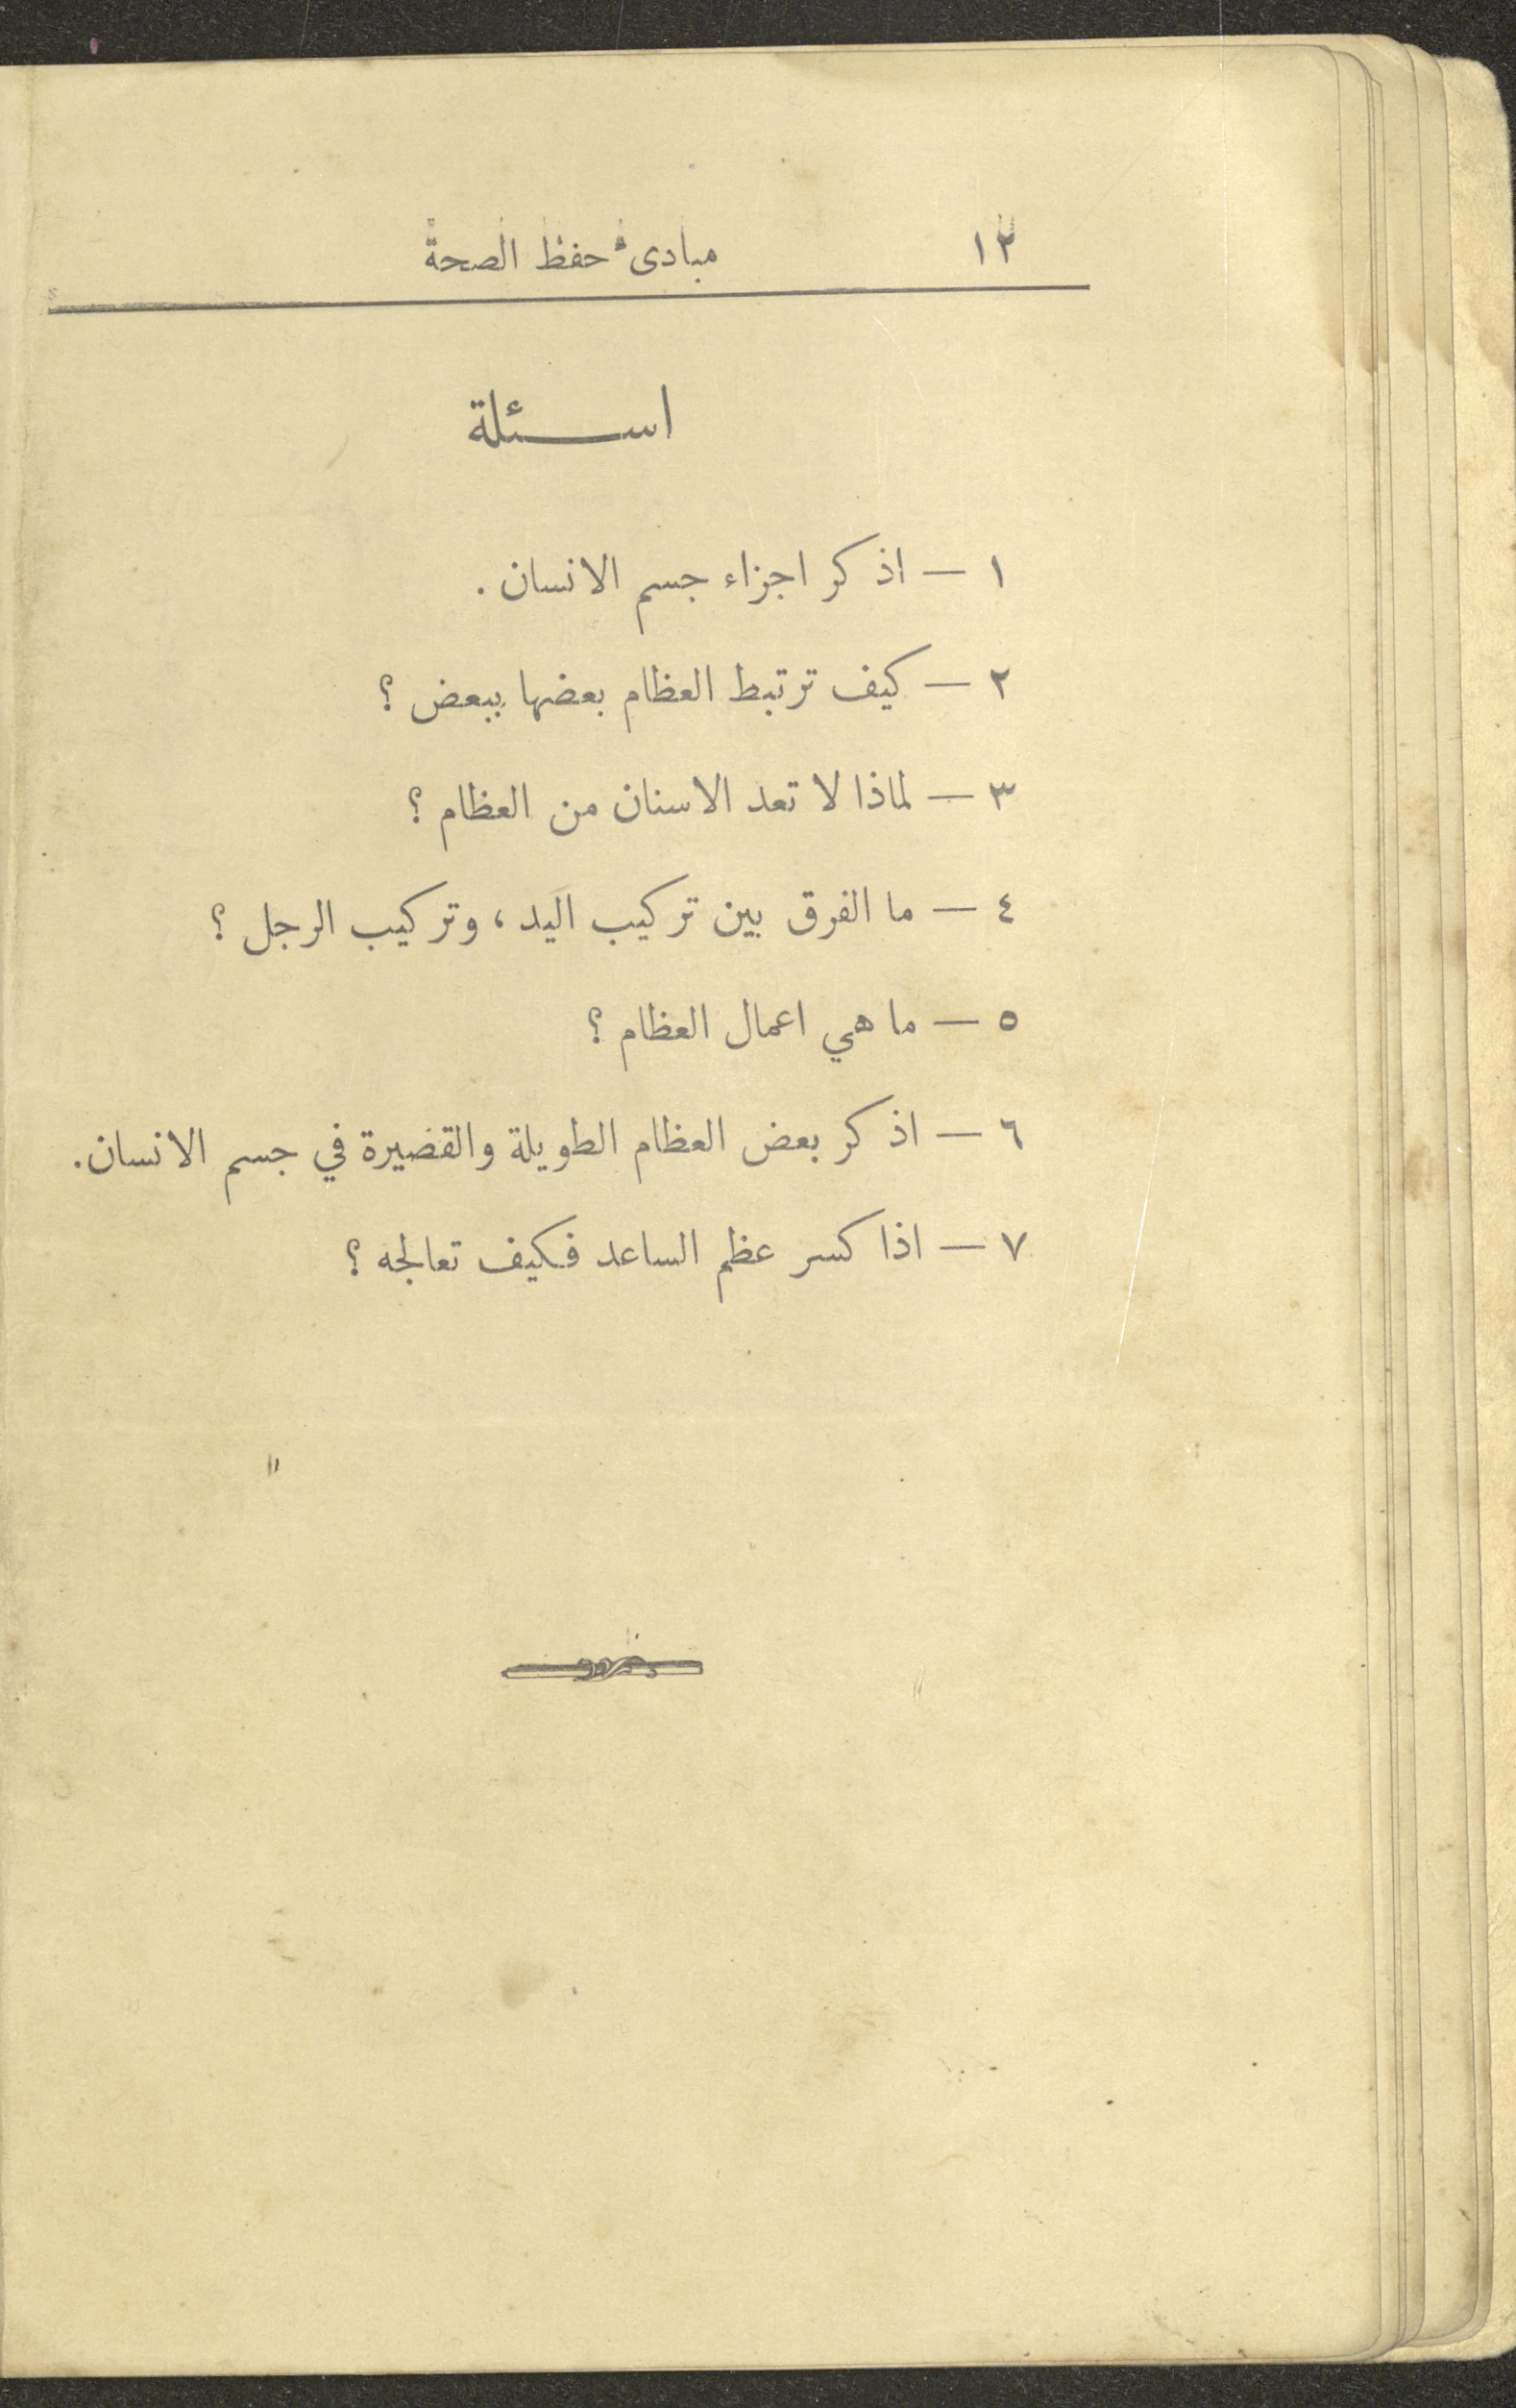 ١٢ مبادىء حفظ الصحة
اسئلة
١ — اذكر اجزاء جسم الانسان .
٢ — كيف ترتبط العظام بعضها ببعض ؟
٣ — لماذا لا تعد الاسنان من العظام ؟
٤ — ما الفرق بين تركيب اليد ، وتركيب الرجل ؟
٥ — ما هي اعمال العظام ؟
٦ — اذكر بعض العظام الطويلة والقضيرة في جسم الانسان.
٧ — اذا كسر عظم الساعد فكيف تعالجه ؟